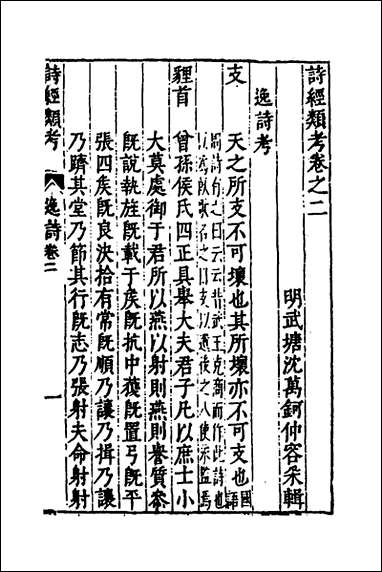 詩經類考卷之二
明武塘沈萬鈳仲容采輯
逸詩考
支 天之所支不可壞也其所壞亦不可支也國語
周詩有之曰云云昔武王克商而作此詩也
以為飫歌名之曰支以遺後之人使永監焉
貍首 曾孫侯氏四正具舉大夫君子凡以庶士小
大莫處御于君所以燕以射則燕則譽質參
既設執旌既載于矦既抗中獲既置弓既平
張四矦既良決拾有常既順乃讓乃揖乃讓
乃躋其堂乃節其行既志乃張射夫命射射
詩經類考 逸詩卷二 一